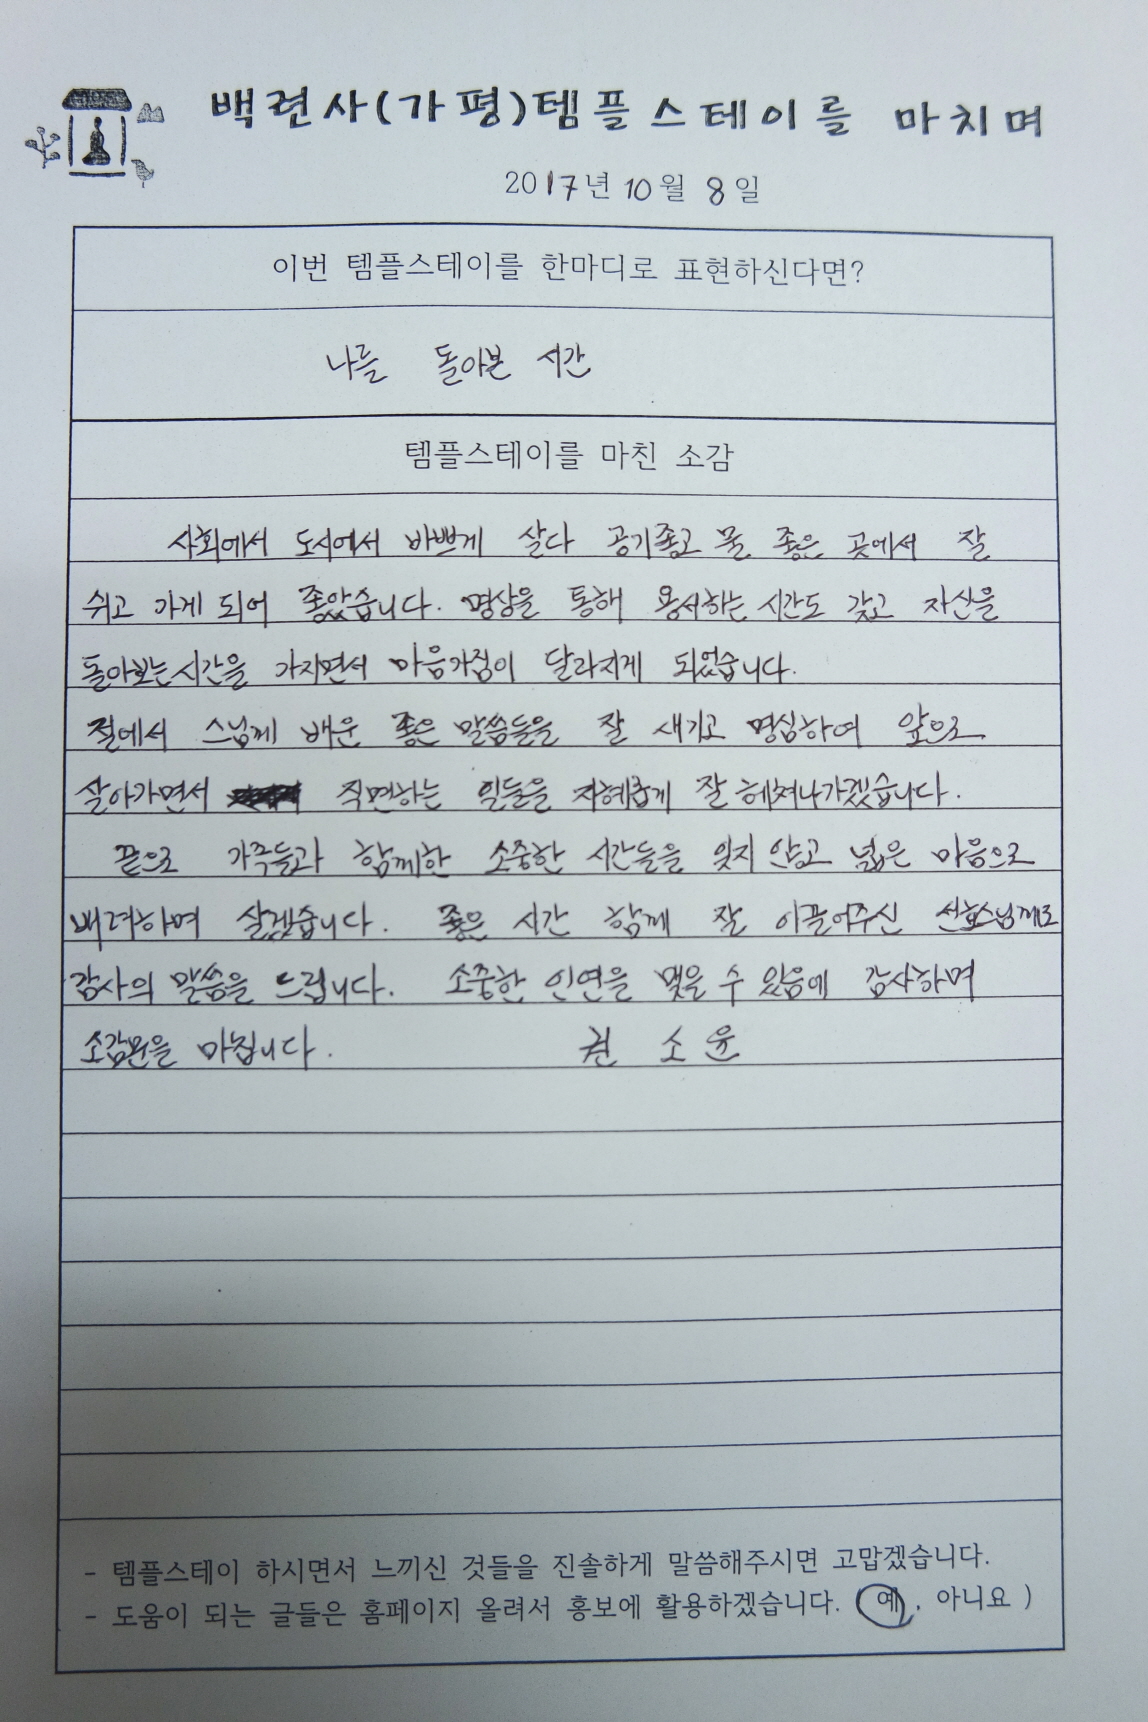 백련사(가평)템플스테이를 마치며
2017년 10월 8일
이번 템플스테이를 한마디로 표현하신다면?
나를 돌아본 시간
템플스테이를 마친 소감
사회에서 도시에서 바쁘게 살다 공기좋고 물 좋은 곳에서 잘
쉬고 가게 되어 좋았습니다. 명상을 통해 용서하는 시간도 갖고 자신을
돌아보는 시간을 가지면서 마음가짐이 달라지게 되었습니다.
절에서 스님께 배운 좋은 말씀들을 잘 새기고 명심하여 앞으로
살아가면서 직면하는 일들을 지혜롭게 잘 헤쳐나가겠습니다.
끝으로 가족들과 함께한 소중한 시간들을 잊지 않고 넓은 마음으로
배려하며 살겠습니다. 좋은 시간 함께 잘 이끌어주신
감사의 말씀을 드립니다. 소중한 인연을 맺을 수 있음에 감사하며
소감문을 마칩니다. 권 소 윤
- 템플스테이 하시면서 느끼신 것들을 진솔하게 말씀해주시면 고맙겠습니다.
- 도움이 되는 글들은 홈페이지 올려서 홍보에 활용하겠습니다. (예, 아니요)